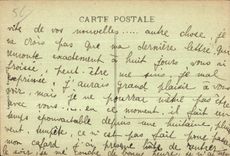 CARTE POSTALE
vite de vos nouvelles..... autre chose, je
ne crois pas que ma dernière lettre, qui
remonte exactement à huit jours vous ai
froissé, peut-être me suis-je mal
exprimée, j'aurais grand plaisir à vous
voir, mais je ne pourrai peut-être pas être
avec vous..... en ce moment il fait un
temps épouvantable depuis une huitaine, pluie
vent, tempête, ce n'est pas fait pour
mon cafard, j'ai presque hâte de rentrer